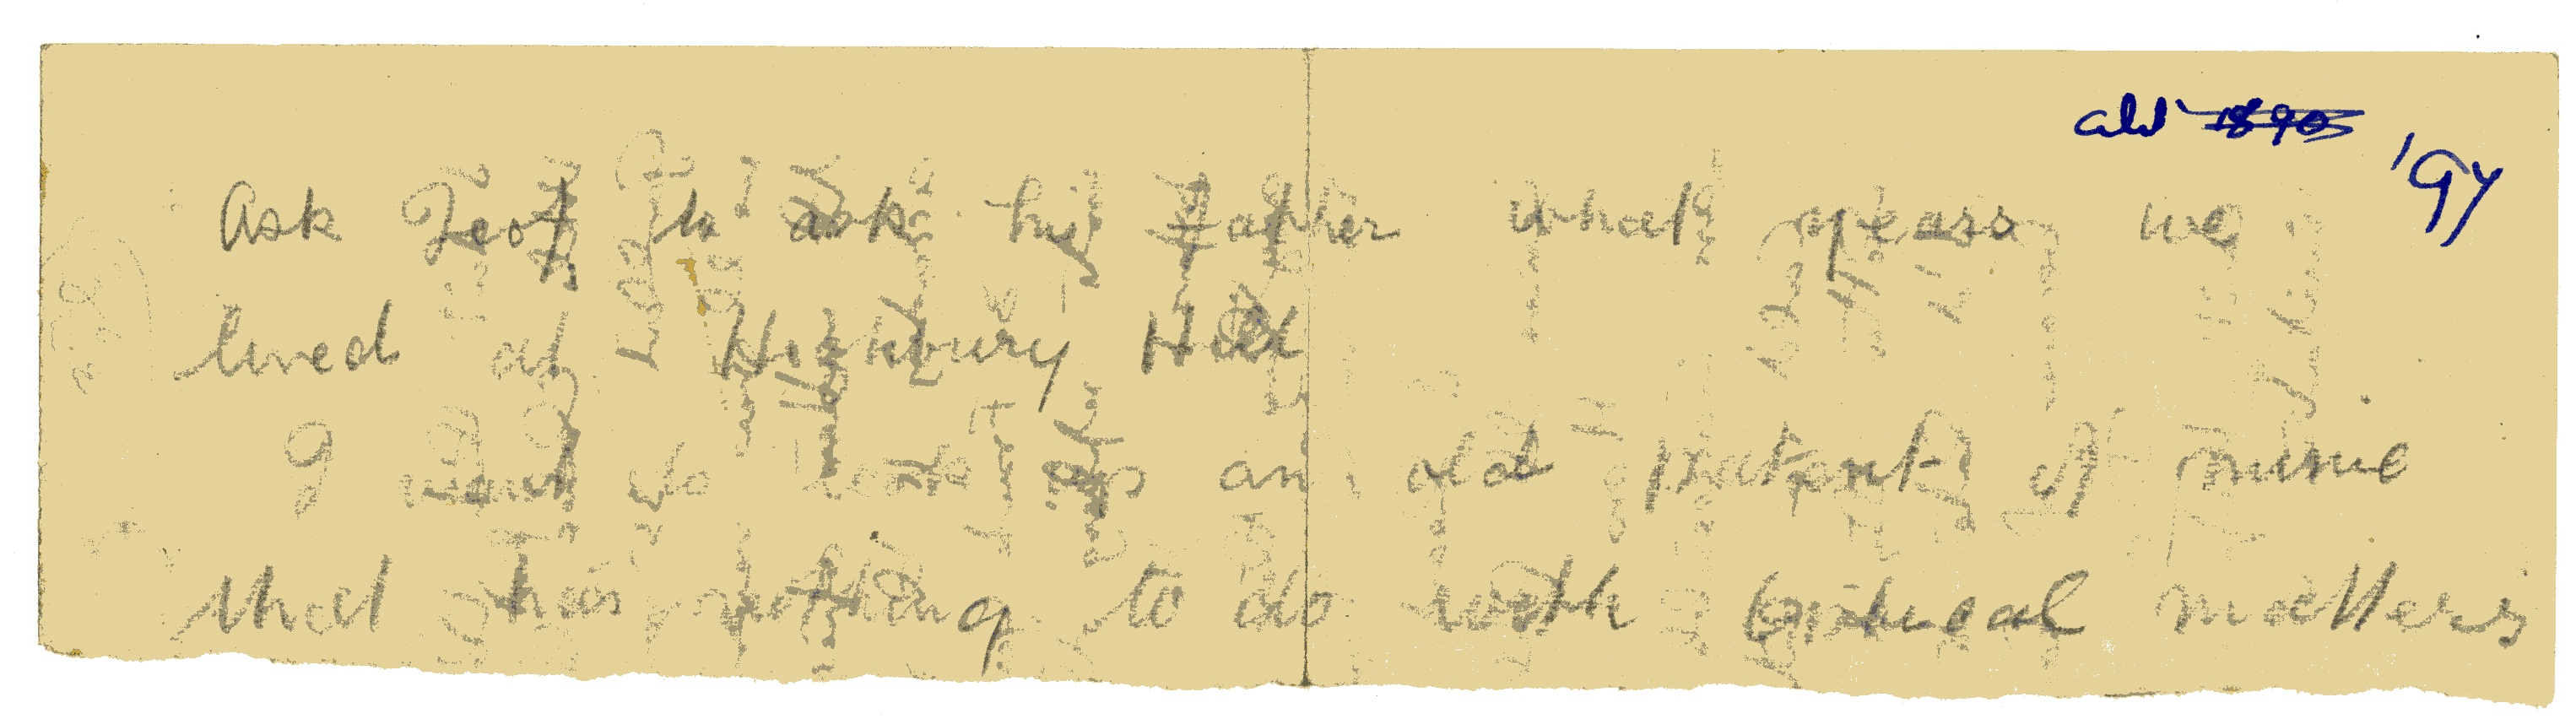 abt 1890 '94
Ask Geof to ask his Father what years we
lived at Highbury Hill
I want to look up an old patent of mine
that has nothing to do with optical matters